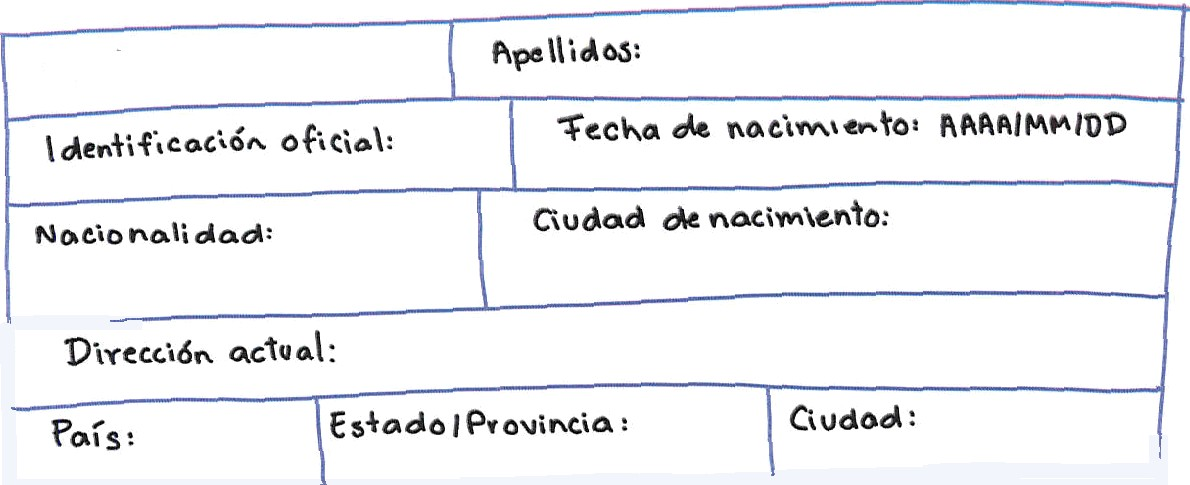 Apellidos:
Identificación oficial:
Fecha de nacimiento: AAAA/MM/DD
Nacionalidad:
Ciudad de nacimiento:
Dirección actual:
País:
Estado/Provincia:
Ciudad: